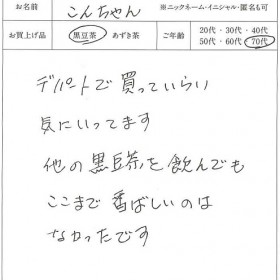 お名前 こんちゃん ※ニックネーム・イニシャル・匿名も可
お買上げ品 黒豆茶 あずき茶 ご年齢 20代・30代・40代
50代・60代・70代
デパートで買っていらい
気にいってます
他の黒豆茶を飲んでも
ここまで香ばしいのは
なかったです